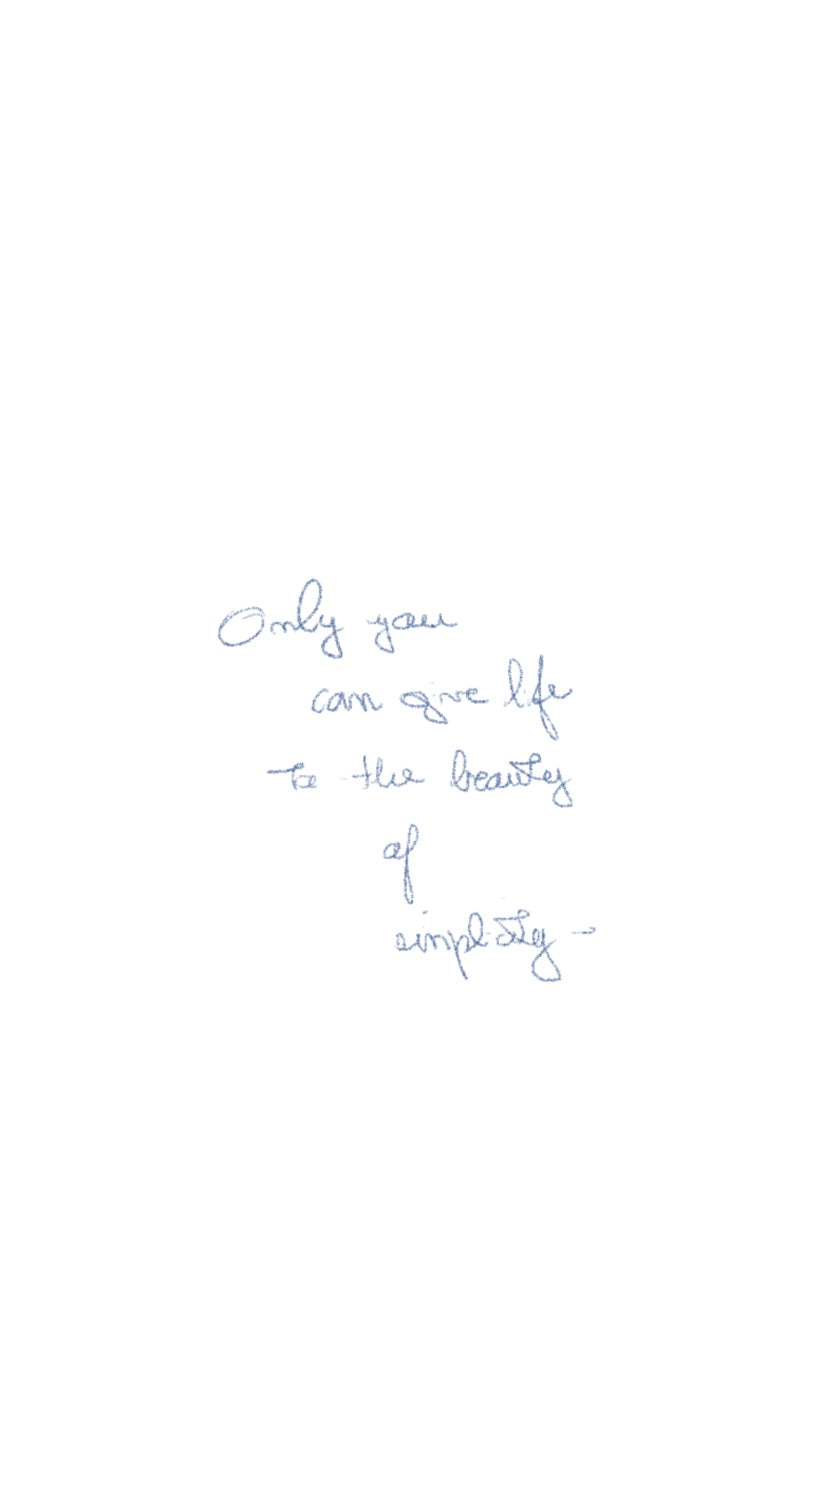 Only you
can give life
to the beauty
of
simplity -